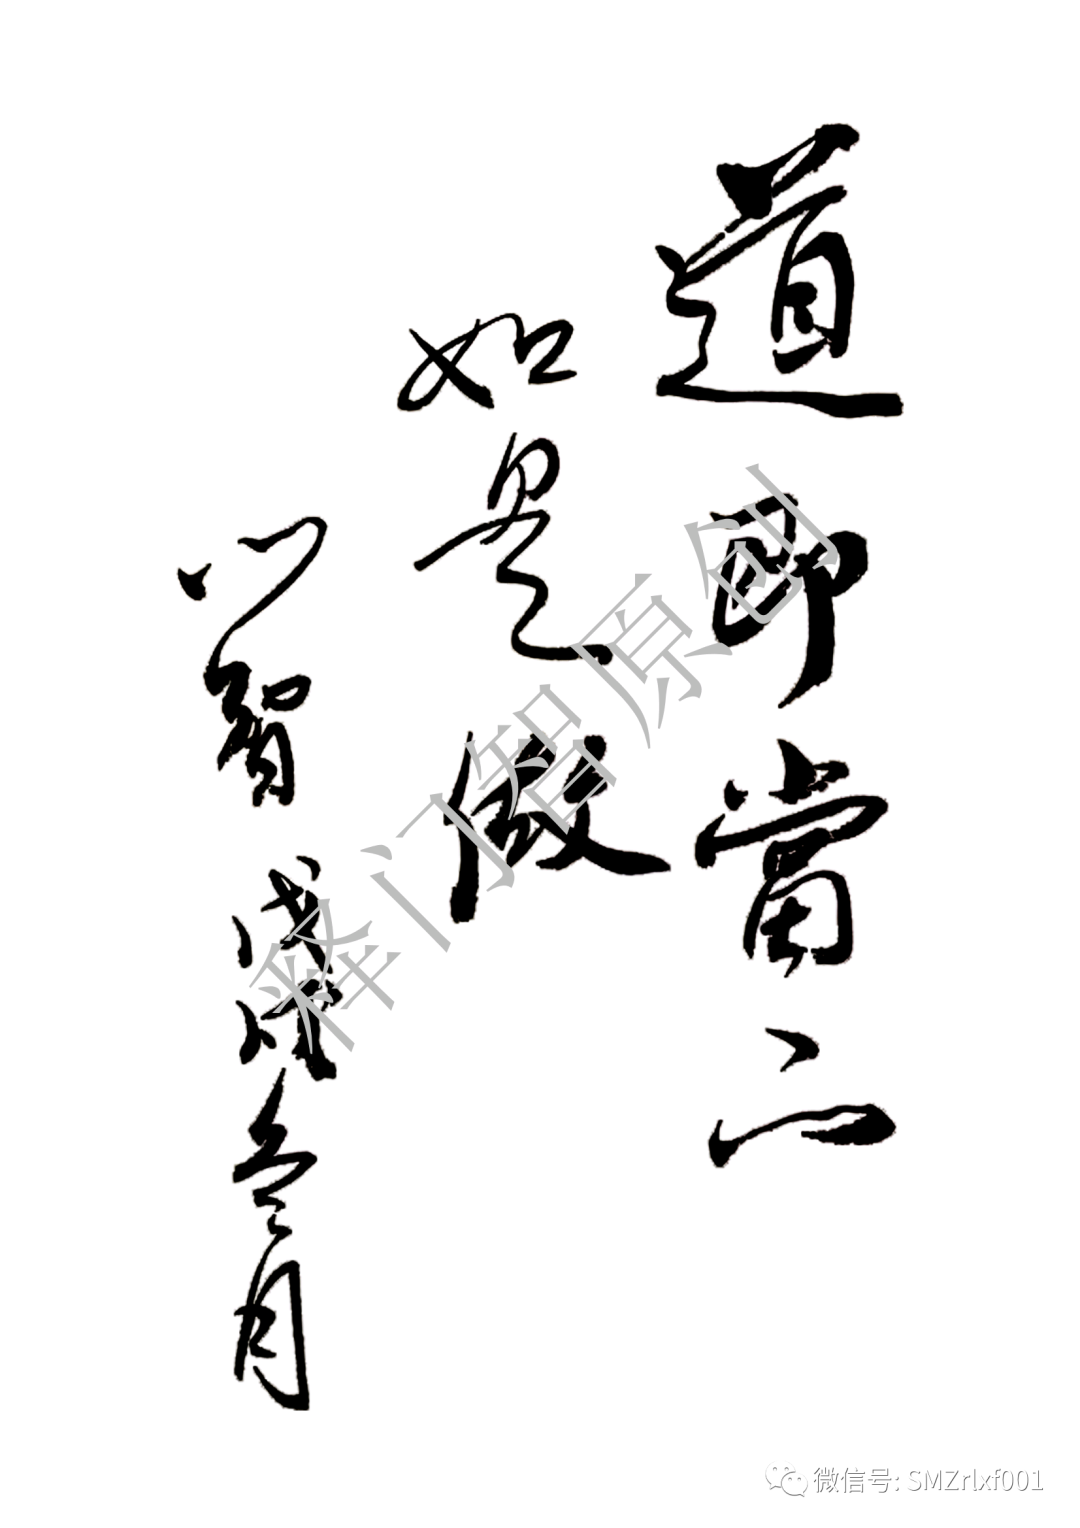 道即當下
如是做
智 戊戌叁月
释门智原创
微信号: SMZrlxf001